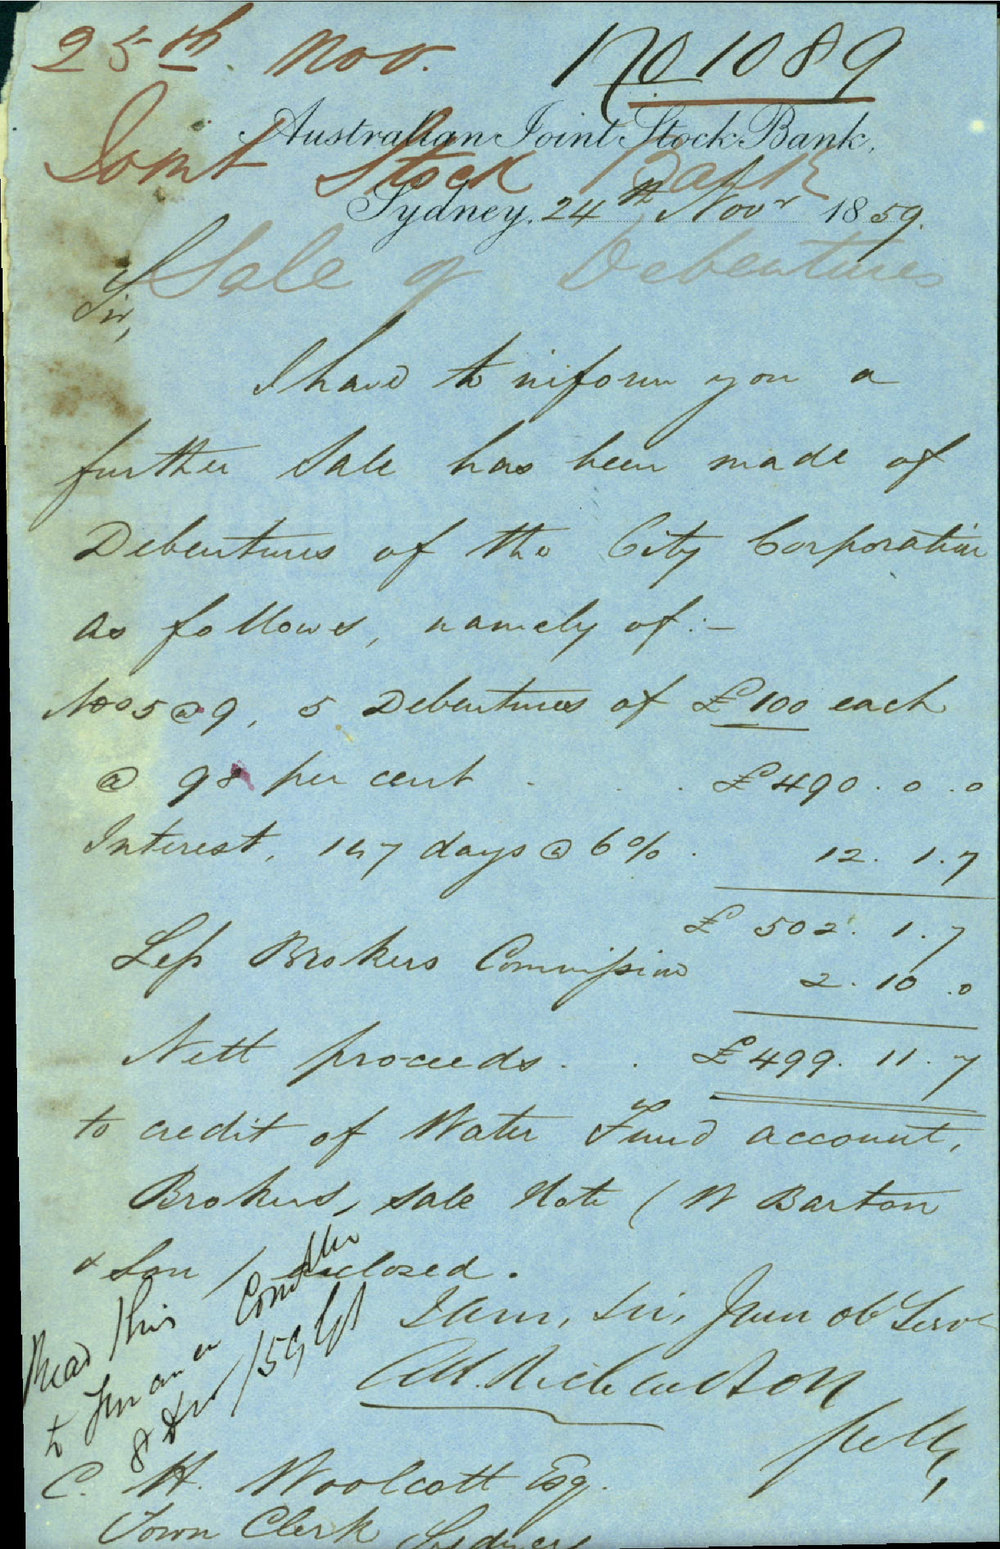 25th. Nov.
No 1089
Australian Joint Stock Bank,
Joint Stock Bank
Sydney, 24th Novr 1859.
Sale of Debentures
Sir,
I have to inform you a
further Sale has been made of
Debentures of the City Corporation
as follows, namely of:-
Nos 5 @ 9, 5 Debentures of £100 each
@ 98 per cent . . . £490. 0. 0
Interest, 147 days @ 6% . 12. 1. 7
£ 502. 1. 7
Less Brokers Commission 2. 10. 0
Nett proceeds . . £499. 11. 7
to credit of Water Fund account,
Brokers, Sale Note (W Barton
& Son) enclosed.
I am, Sir, Your ob Servt
Richardson
Read this
to Finance Committee
8 /59
C. H. Woolcott Esq.
Town Clerk Sydney